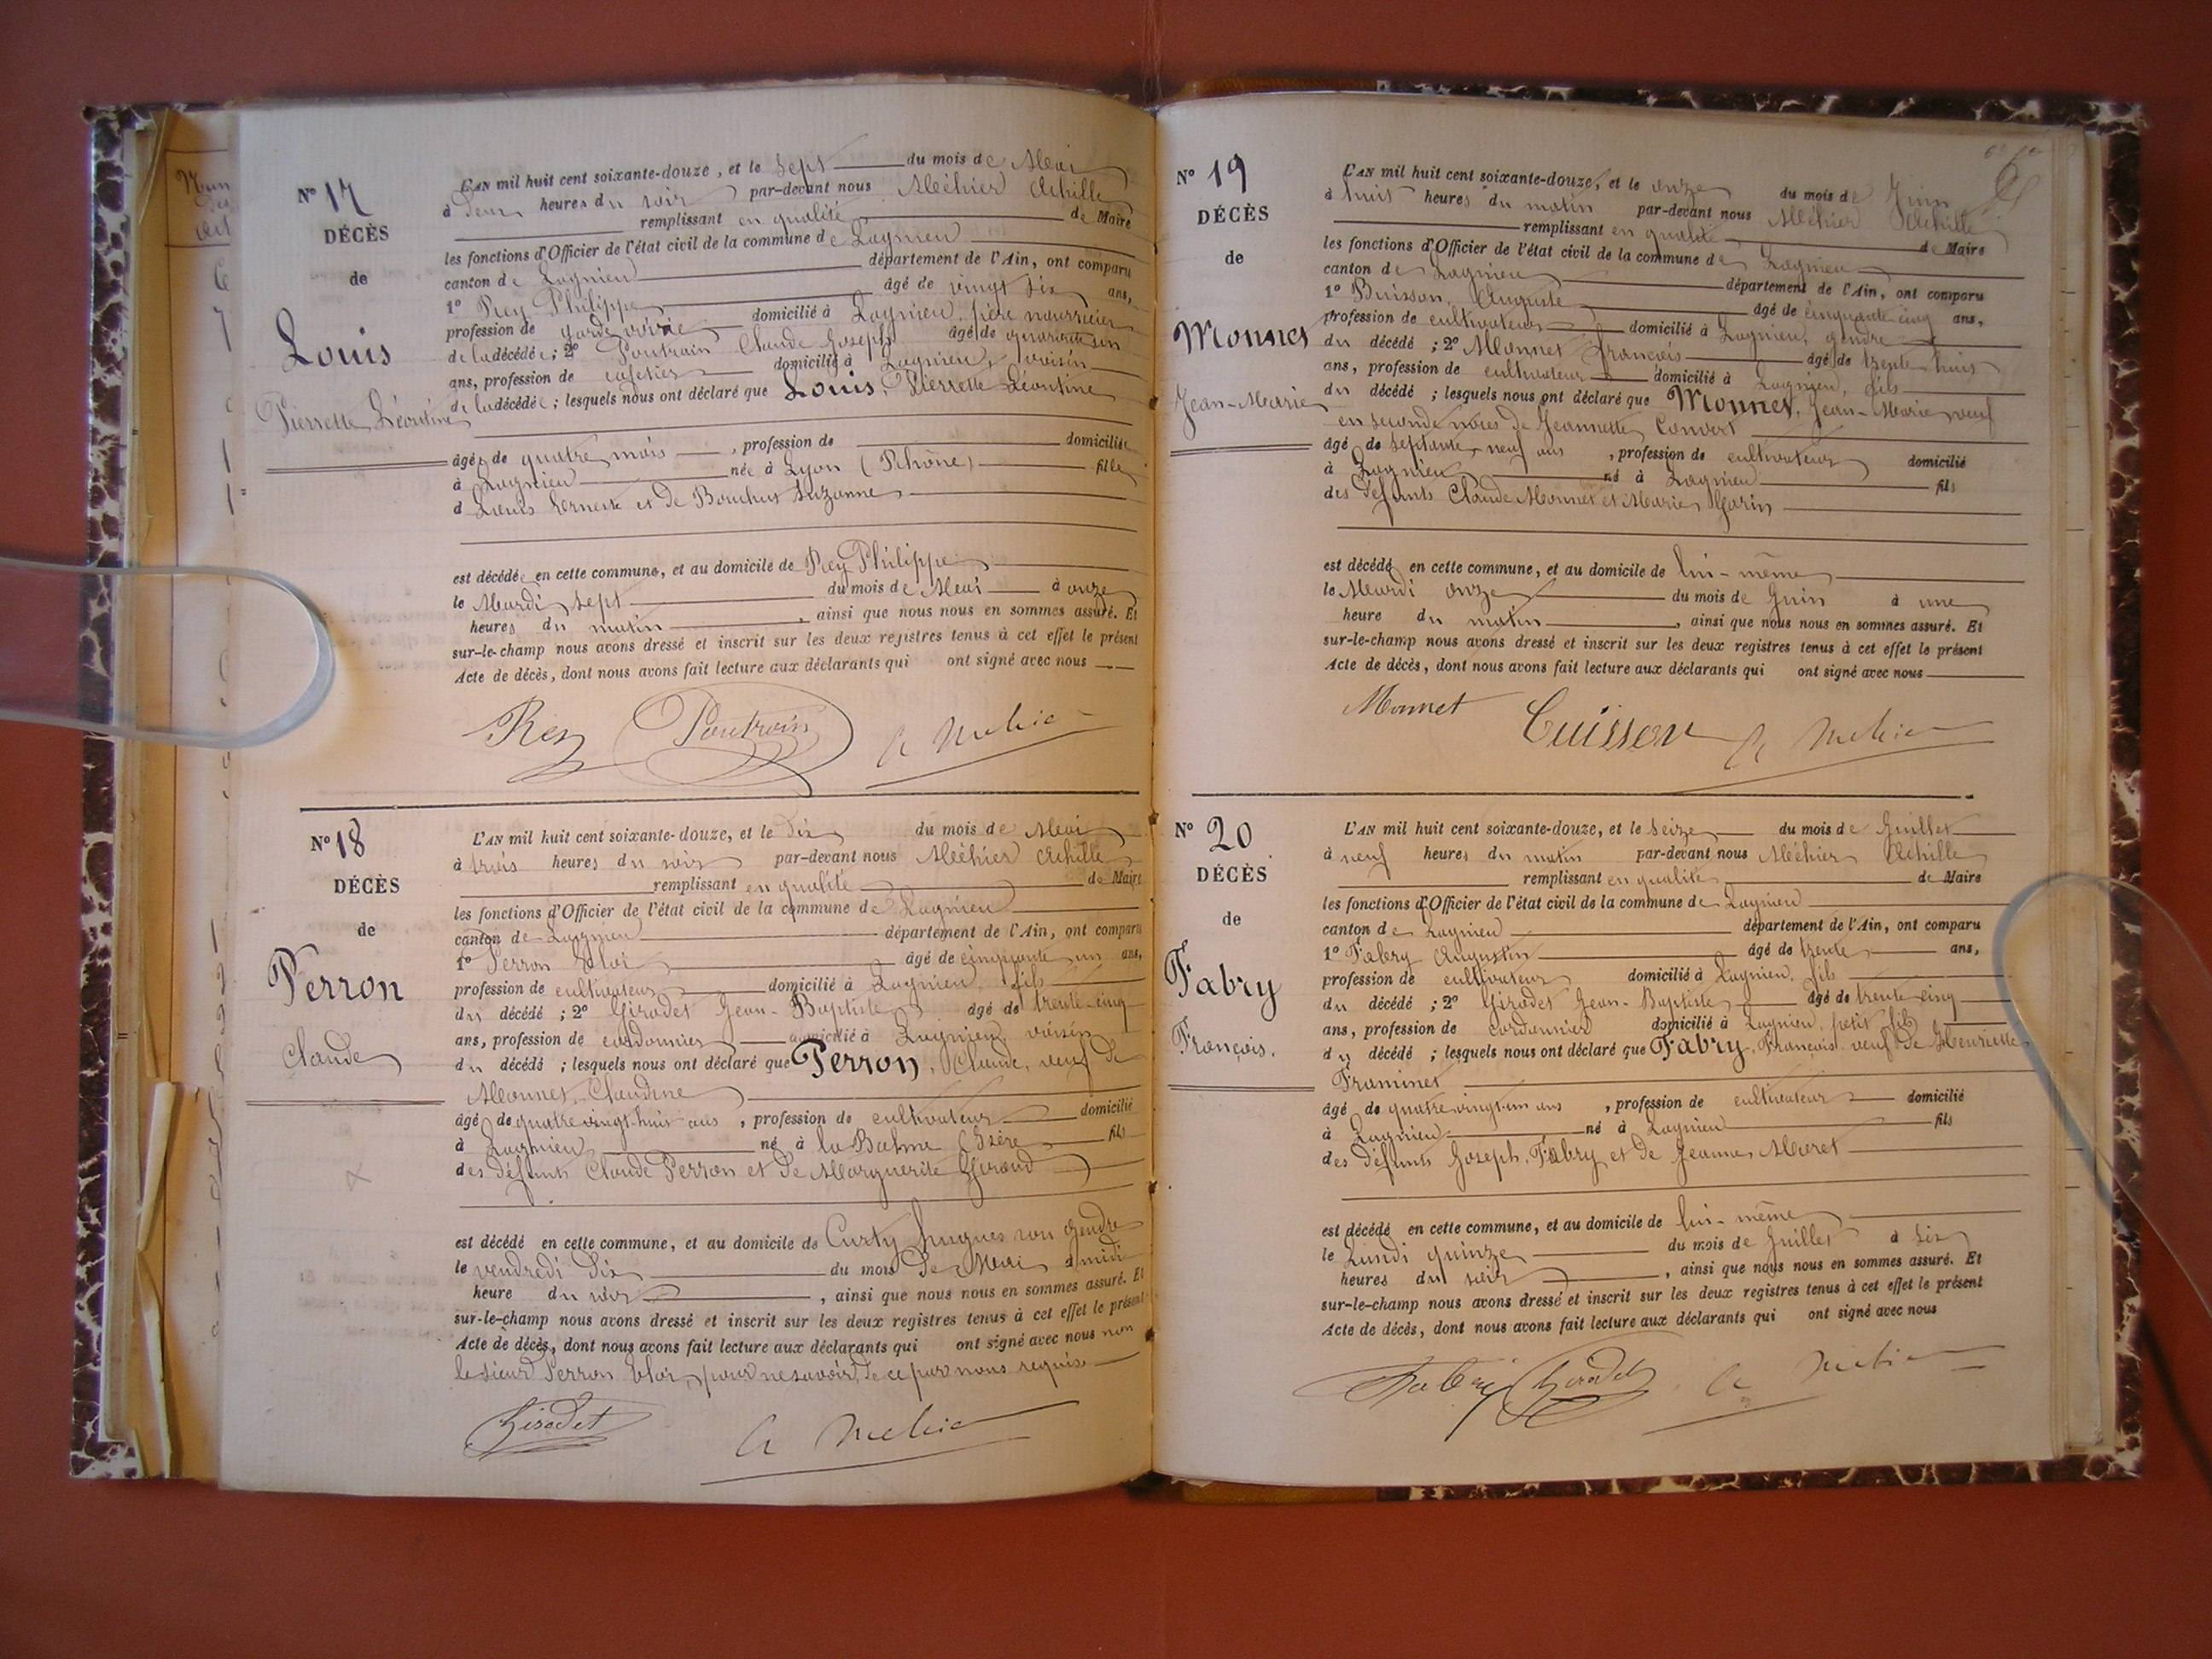 N° 17
DÉCÈS
de
Louis
Pierrette Léontine
L'AN mil huit cent soixante-douze, et le sept du mois de Mai
à deux heures du soir par-devant nous Méhier Achille
remplissant en qualité de Maire
les fonctions d'Officier de l'état civil de la commune de Lagnieu
canton de Lagnieu département de l'Ain, ont comparu
1° Rey Philippe âgé de vingt six ans,
profession de garde voirie domicilié à Lagnieu, père nourricier
de la décédée ; 2° Poutrain Claude Joseph âgé de quarante six
ans, profession de cafetier domicilié à Lagnieu, voisin
de la décédée ; lesquels nous ont déclaré que Louis, Pierrette Léontine
âgée de quatre mois , profession de domiciliée
à Lagnieu née à Lyon (Rhône) fille
d Louis Ernest et de Bouchut Suzanne
est décédée en cette commune, et au domicile de Rey Philippe
le Mardi sept du mois de Mai à onze
heures du matin , ainsi que nous nous en sommes assuré. Et
sur-le-champ nous avons dressé et inscrit sur les deux registres tenus à cet effet le présent
Acte de décès, dont nous avons fait lecture aux déclarants qui ont signé avec nous
Rey Poutrain A Mehier
N° 18
DÉCÈS
de
Perron
Claude
L'AN mil huit cent soixante-douze, et le dix du mois de Mai
à trois heures du soir par-devant nous Méhier Achille
remplissant en qualité de Maire
les fonctions d'Officier de l'état civil de la commune de Lagnieu
canton de Lagnieu département de l'Ain, ont comparu
1° Perron Eloi âgé de cinquante un ans,
profession de cultivateur domicilié à Lagnieu, fils
du décédé ; 2° Girodet Jean-Baptiste âgé de trente-cinq
ans, profession de cordonnier domicilié à Lagnieu, voisin
du décédé ; lesquels nous ont déclaré que Perron, Claude, veuf de
Monnet, Claudine
âgé de quatre vingt-huit ans , profession de cultivateur domicilié
à Lagnieu né à la Balme (Isère) fils
des défunts Claude Perron et de Marguerite Giroud
est décédé en cette commune, et au domicile de Curty hugues son gendre
le vendredi dix du mois de Mai à midi
heure du soir , ainsi que nous nous en sommes assuré. Et
sur-le-champ nous avons dressé et inscrit sur les deux registres tenus à cet effet le présent
Acte de décès, dont nous avons fait lecture aux déclarants qui ont signé avec nous non
le sieur Perron Eloi, pour ne savoir, de ce par nous requis
Girodet A Mehier
N° 19
DÉCÈS
de
Monnet
Jean-Marie
L'AN mil huit cent soixante-douze, et le onze du mois de Juin
à huit heures du matin par-devant nous Méhier Achille
remplissant en qualité de Maire
les fonctions d'Officier de l'état civil de la commune de Lagnieu
canton de Lagnieu département de l'Ain, ont comparu
1° Buisson, Auguste âgé de cinquante cinq ans,
profession de cultivateur domicilié à Lagnieu, gendre
du décédé ; 2° Monnet François âgé de trente huit
ans, profession de cultivateur domicilié à Lagnieu, fils
du décédé ; lesquels nous ont déclaré que Monnet, Jean-Marie, veuf
en seconde noces de Jeannette Convert
âgé de septante-neuf ans , profession de cultivateur domicilié
à Lagnieu né à Lagnieu fils
des défunts Claude Monnet et Marie Marin
est décédé en cette commune, et au domicile de lui-même
le Mardi onze du mois de Juin à une
heure du matin , ainsi que nous nous en sommes assuré. Et
sur-le-champ nous avons dressé et inscrit sur les deux registres tenus à cet effet le présent
Acte de décès, dont nous avons fait lecture aux déclarants qui ont signé avec nous
Monnet Buisson A Mehier
N° 20
DÉCÈS
de
Fabry
François.
L'AN mil huit cent soixante-douze, et le seize du mois de Juillet
à neuf heures du matin par-devant nous Méhier Achille
remplissant en qualité de Maire
les fonctions d'Officier de l'état civil de la commune de Lagnieu
canton de Lagnieu département de l'Ain, ont comparu
1° Fabry Augustin âgé de trente ans,
profession de cultivateur domicilié à Lagnieu, fils
du décédé ; 2° Girodet Jean-Baptiste âgé de trente cinq
ans, profession de cordonnier domicilié à Lagnieu, petit fils
du décédé ; lesquels nous ont déclaré que Fabry, François, veuf de Henriette
Framinet
âgé de quatre vingt-un ans , profession de cultivateur domicilié
à Lagnieu né à Lagnieu fils
des défunts Joseph Fabry et de Jeanne Moret
est décédé en cette commune, et au domicile de lui-même
le Lundi quinze du mois de Juillet à six
heures du soir , ainsi que nous nous en sommes assuré. Et
sur-le-champ nous avons dressé et inscrit sur les deux registres tenus à cet effet le présent
Acte de décès, dont nous avons fait lecture aux déclarants qui ont signé avec nous
Fabry Girodet A Mehier